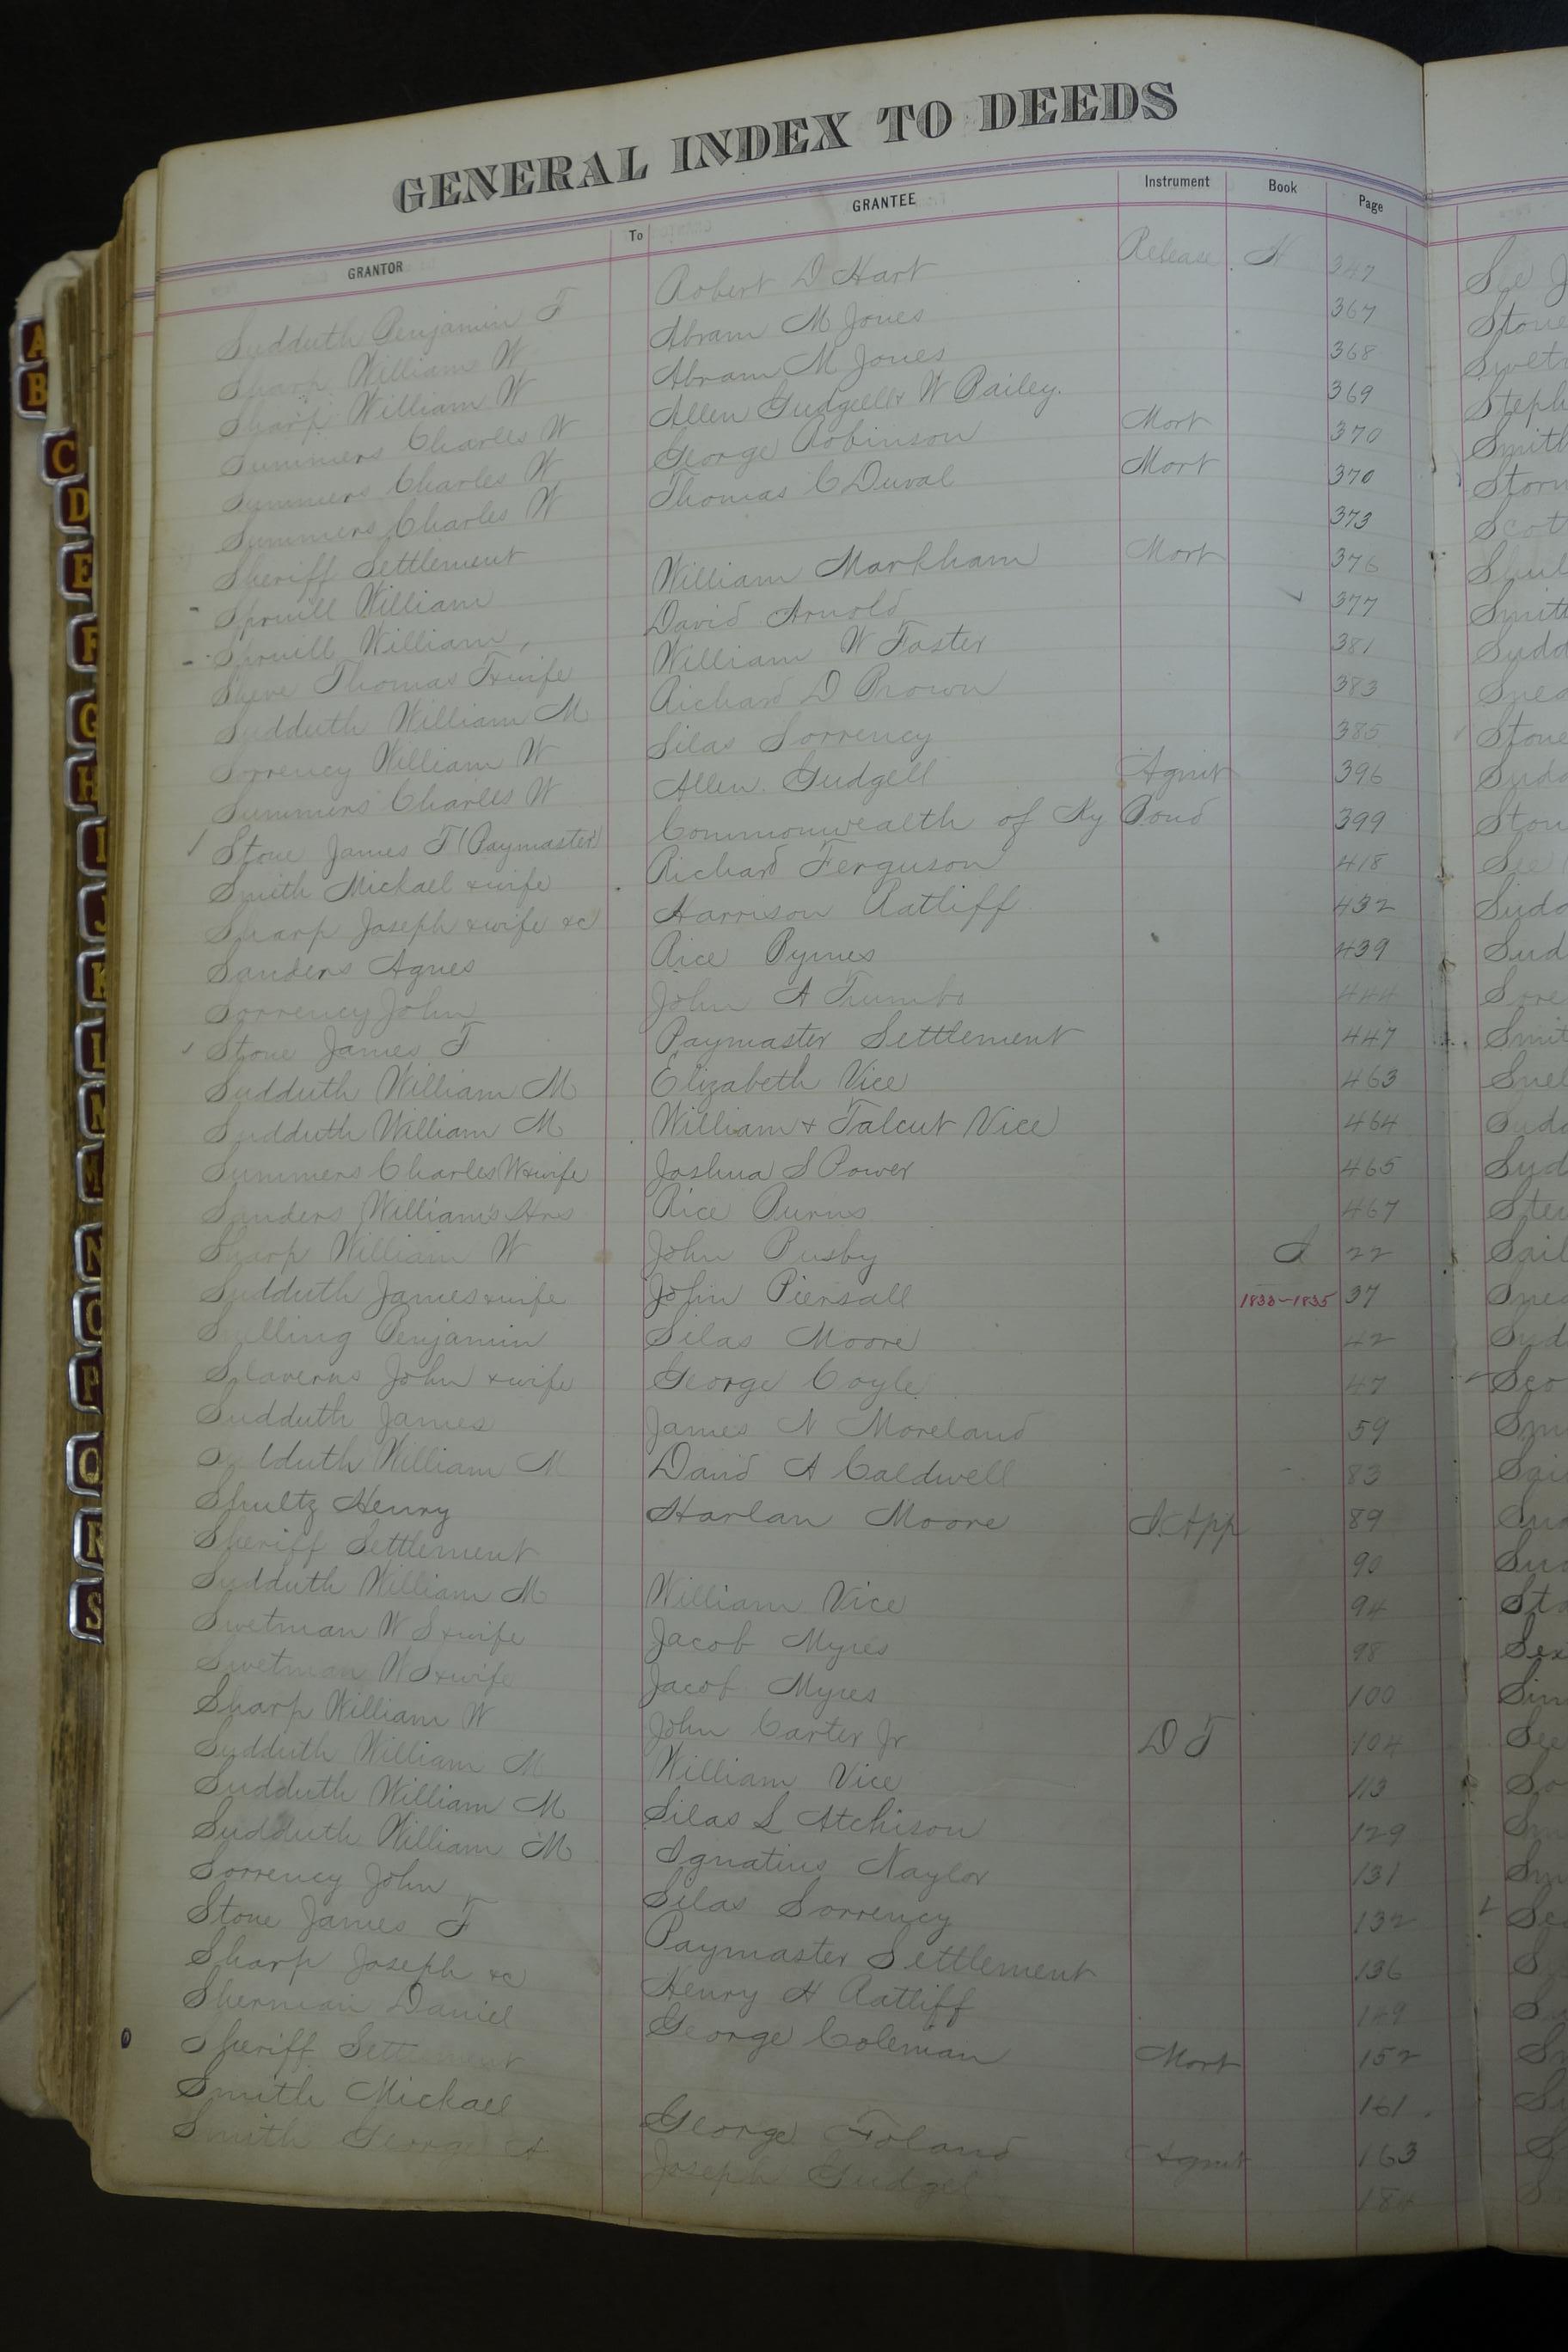 GENERAL INDEX TO DEEDS
GRANTOR To GRANTEE Instrument Book Page
Sudduth Benjamin F Robert D Hart Release H 347
Sharp William W Abram M Jones 367
Sharp William W Abram M Jones 368
Summers Charles W Allen Gudgell & W Bailey. 369
Summers Charles W George Robinson Mort 370
Summers Charles W Thomas C Duval Mort 370
Sheriff Settlement 373
Spruill William William Markham Mort 376
Spruill William David Arnold 377
Thomas F & wife William W Foster 381
Sudduth William M Richard D Brown 383
Sorrency William W Silas Sorrency 385
Summers Charles W Allen Gudgell Agmt 396
Stone James F (Paymaster) Commonwealth of Ky Bond 399
Smith Mickael & wife Richard Ferguson 418
Sharp Joseph & wife &c Harrison Ratliff 432
Sanders Agnes Rice Bymes 439
Sorrency John John A Trumbo 444
Stone James F Paymaster Settlement 447
Sudduth William M Elizabeth Vice 463
Sudduth William M William & Talcut Vice 464
Summers Charles W & wife Joshua S Power 465
Sanders William's Hrs Rice Burns 467
Sharp William W John Busby I 22
Sudduth James & wife John Piersall 1833-1835 37
Benjamin Silas Moore 42
Slaverns John & wife George Coyle 47
Sudduth James James N Moreland 59
Sudduth William M David A Caldwell 83
Shultz Henry Harlan Moore I. App 89
Sheriff Settlement 90
Sudduth William M William Vice 94
Swetman W S & wife Jacob Myres 98
Swetman W S & wife Jacob Myres 100
Sharp William W John Carter Jr D T 104
Sudduth William M William Vice 113
Sudduth William M Silas L Atchison 129
Sudduth William M Ignatius Naylor 131
Sorrency John Silas Sorrency 132
Stone James F Paymaster Settlement 136
Sharp Joseph &c Henry H Ratliff 149
Sherman Daniel George Coleman Mort 152
Sheriff Settlement 161
Smith Mickael George Foland Agmt 163
Smith George A Joseph Gudgel 184
A
B
C
D
E
F
G
H
I
J
K
L
M
N
O
P
Q
R
S